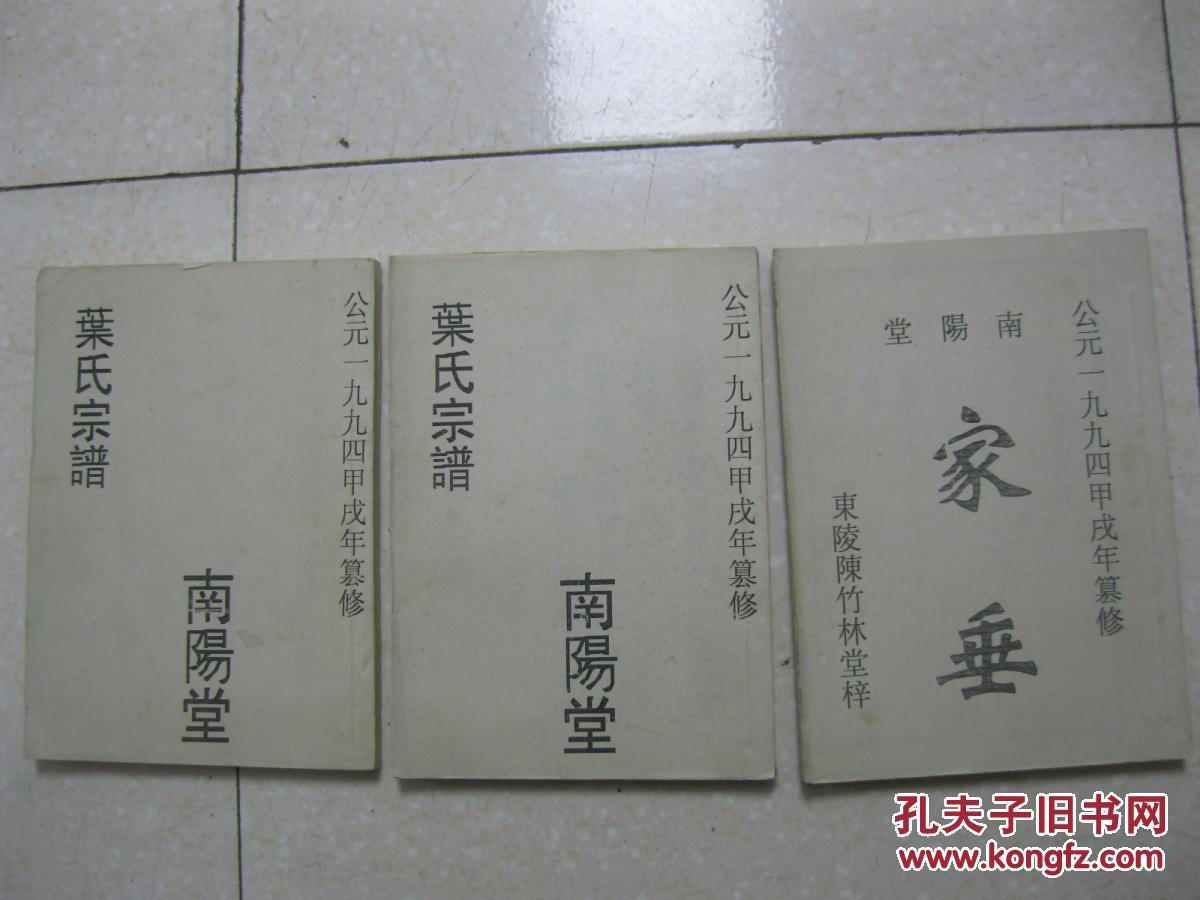 公元一九九四甲戌年篡修
葉氏宗譜
南陽堂
公元一九九四甲戌年篡修
葉氏宗譜
南陽堂
公元一九九四甲戌年篡修
南陽堂
家垂
東陵陳竹林堂梓
孔夫子旧书网
www.kongfz.com